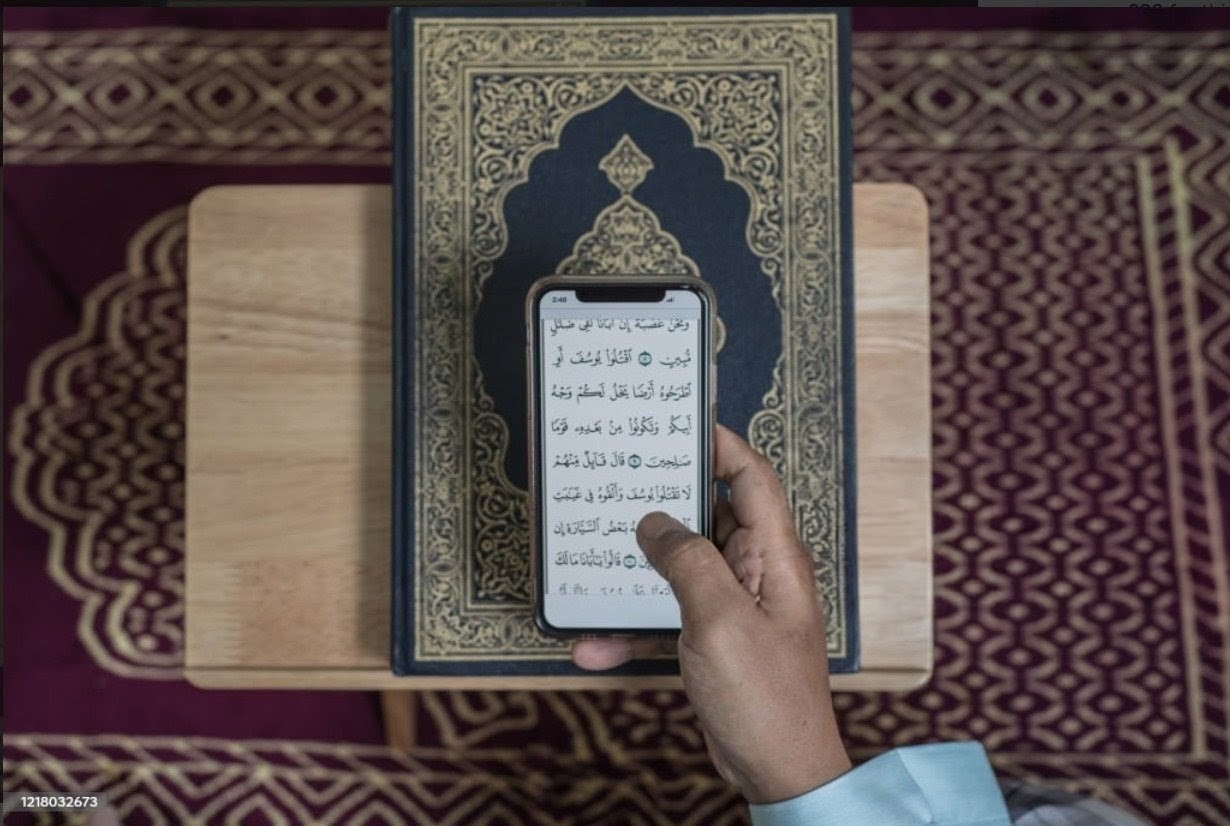 2:48
وَنَحْنُ عُصْبَةٌ إِنَّ أَبَانَا لَفِى ضَلَٰلٍ
مُّبِينٍ ٨ ٱقْتُلُوا۟ يُوسُفَ أَوِ
ٱطْرَحُوهُ أَرْضًا يَخْلُ لَكُمْ وَجْهُ
أَبِيكُمْ وَتَكُونُوا۟ مِنۢ بَعْدِهِۦ قَوْمًا
صَٰلِحِينَ ٩ قَالَ قَآئِلٌ مِّنْهُمْ
لَا تَقْتُلُوا۟ يُوسُفَ وَأَلْقُوهُ فِى غَيَٰبَتِ
بَعْضُ ٱلسَّيَّارَةِ إِن
قَالُوا۟ يَٰٓأَبَانَا مَا لَكَ
1218032673